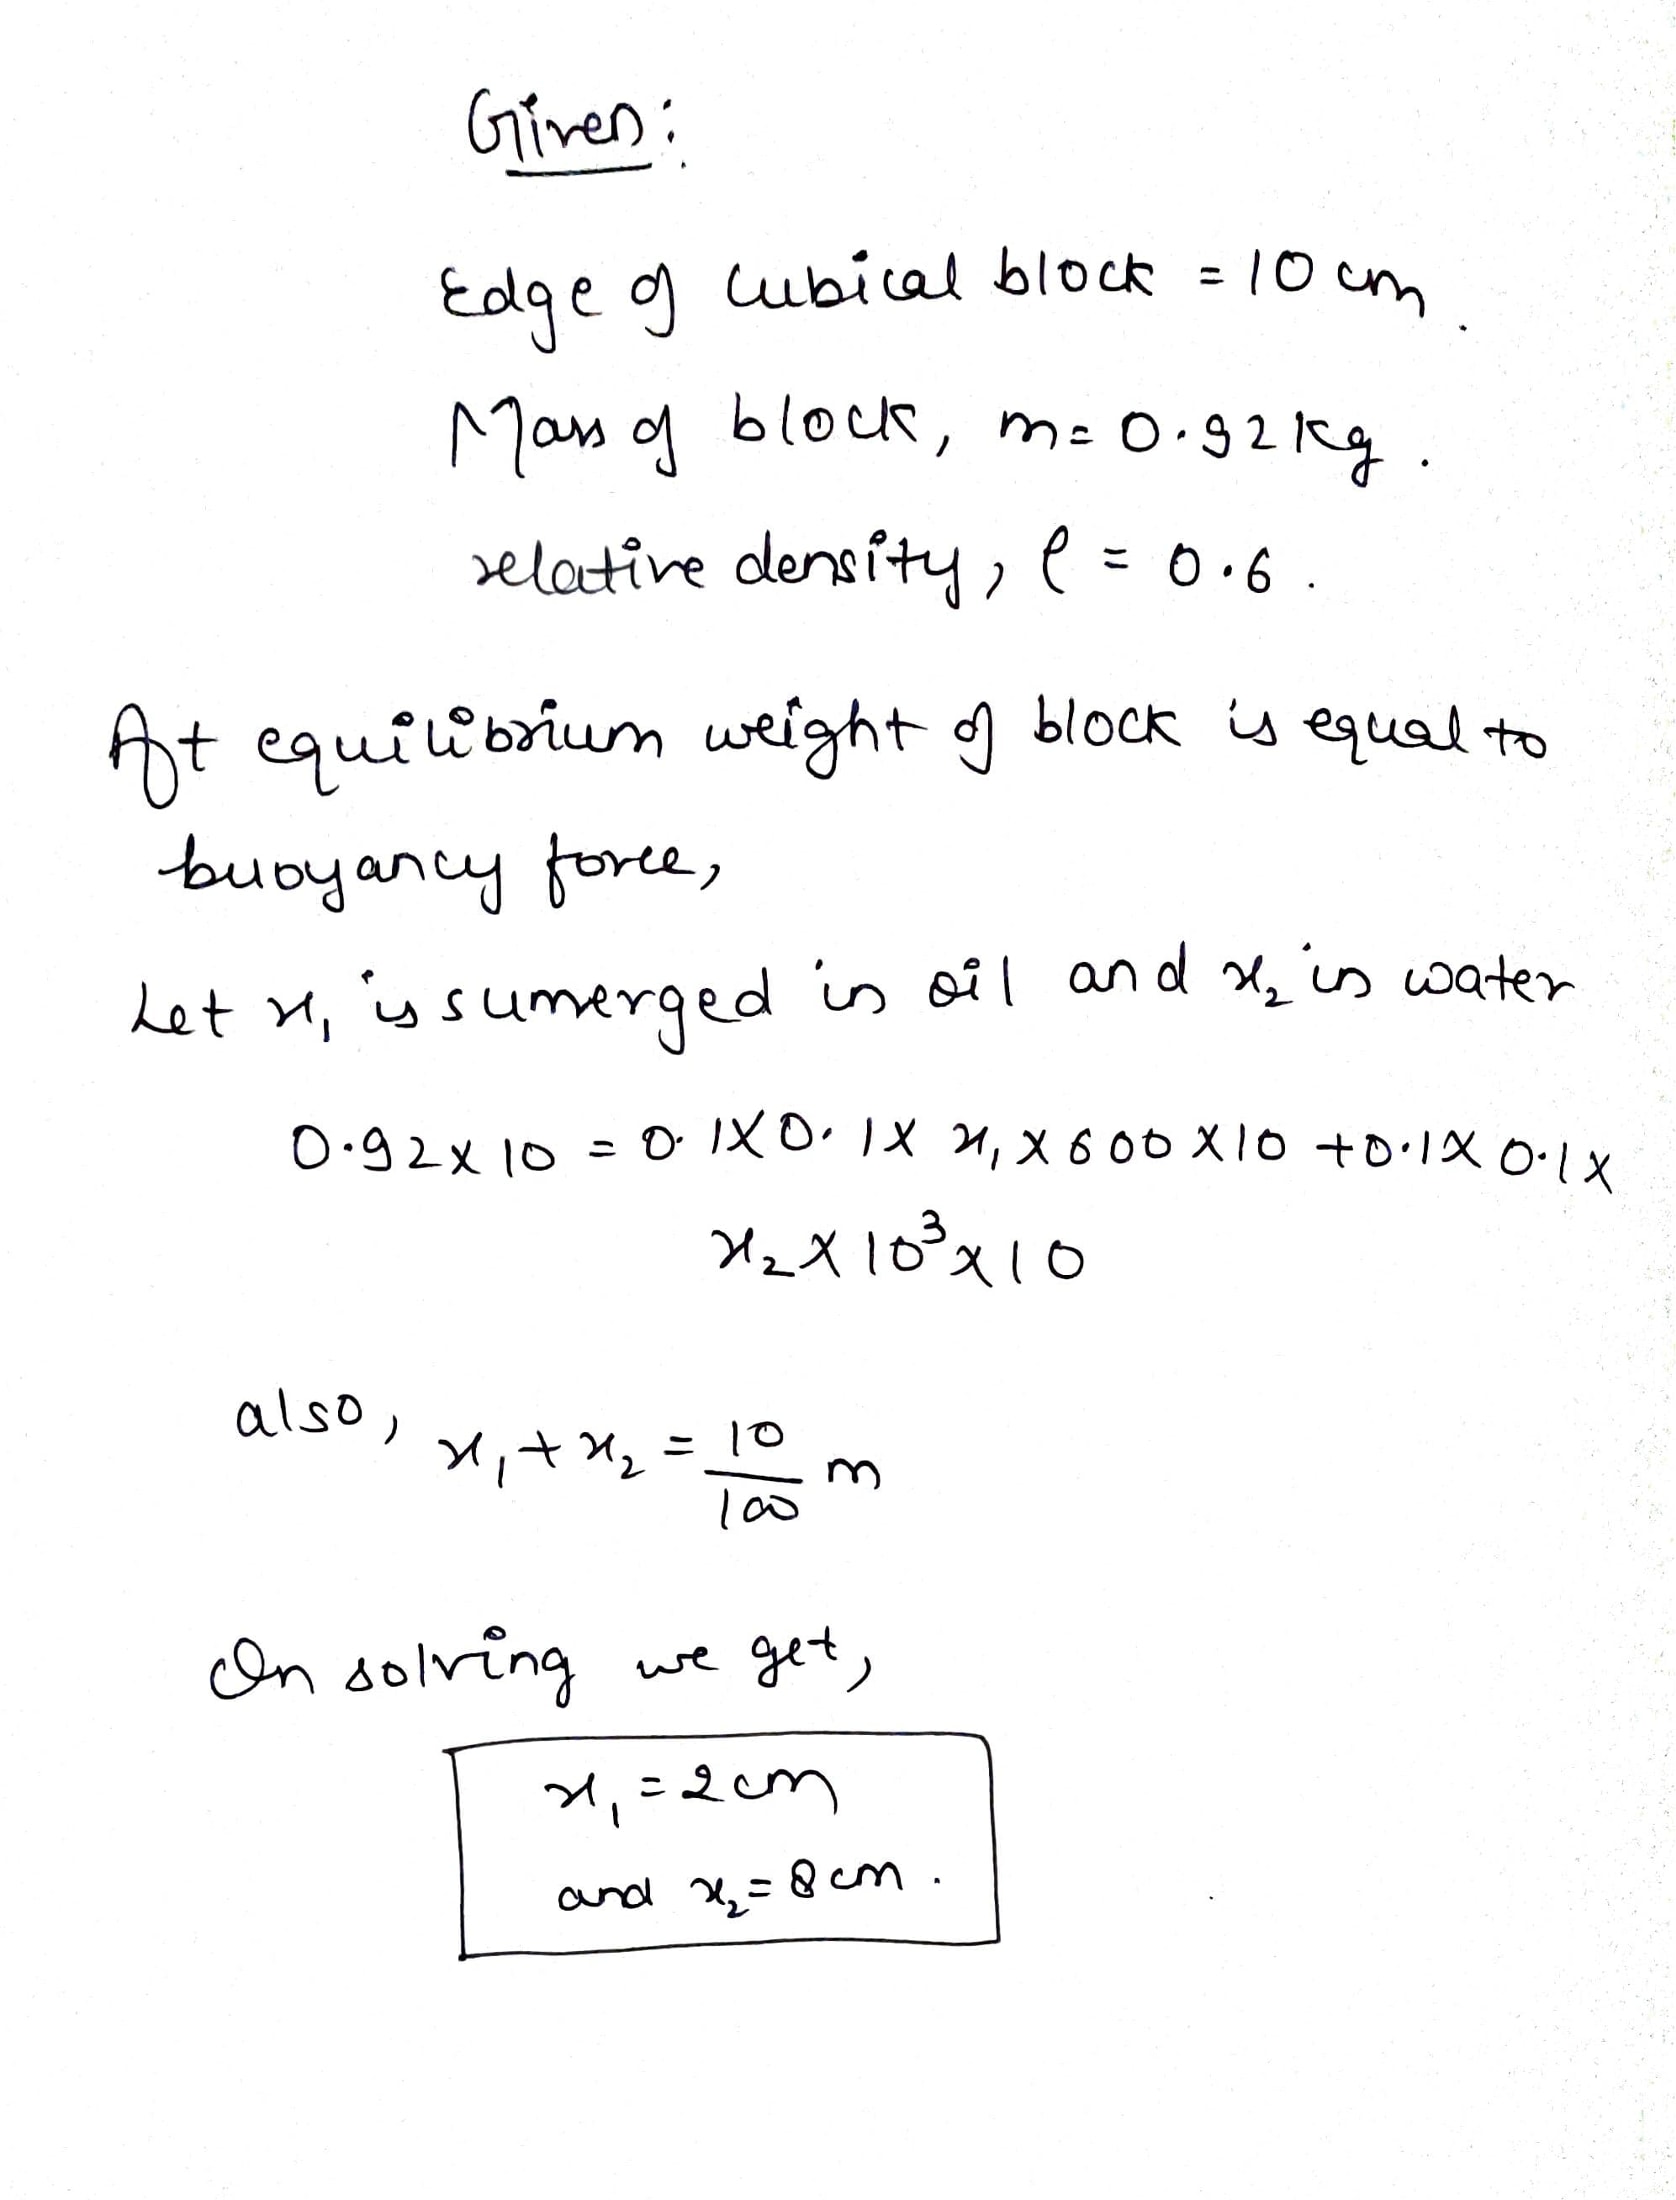 Given:
Edge of cubical block = 10 cm.
Mass of block, m = 0.92 kg.
relative density, ρ = 0.6.
At equilibrium weight of block is equal to
buoyancy force,
Let x₁ is sumerged in oil and x₂ in water
0.92 x 10 = 0.1 X 0.1 X x₁ X 600 X 10 + 0.1 X 0.1 X
x₂ X 10³ x 10
also, x₁ + x₂ = 10/100 m
On solving we get,
x₁ = 2 cm
and x₂ = 8 cm.